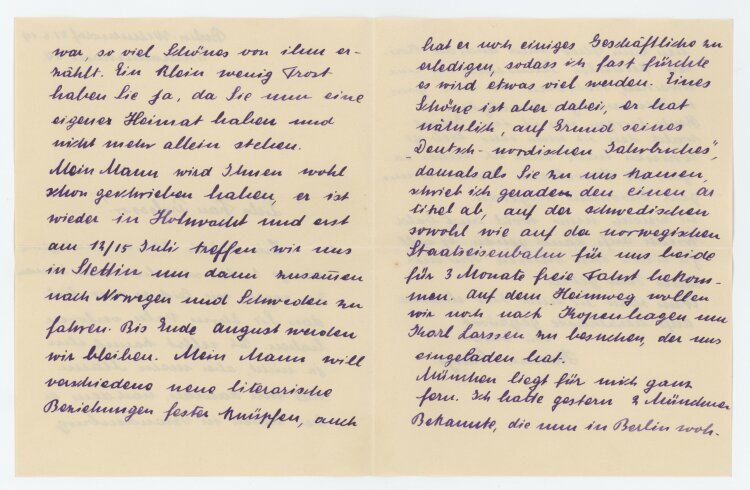 war, so viel Schönes von ihm er-
zählt. Ein klein wenig Trost
haben Sie ja, da Sie nun eine
eigene Heimat haben und
nicht mehr allein stehen.
Mein Mann wird Ihnen wohl
schon geschrieben haben, er ist
wieder in und erst
am 12/15 Juli treffen wir uns
in Stettin um dann zusammen
nach Norwegen und Schweden zu
fahren. Bis Ende August werden
wir bleiben. Mein Mann will
verschiedene neue literarische
Beziehungen fester knüpfen, auch
hat er noch einiges Geschäftliche zu
erledigen, sodass ich fast fürchte
es wird etwas viel werden. Eines
Schöne ist aber dabei, er hat
nämlich, auf Grund seines
„Deutsch-nordischen Jahrbuches",
damals als Sie zu uns kamen,
schrieb ich gerade den einen Ar
tikel ab, auf der schwedischen
sowohl wie auf der norwegischen
Staatseisenbahn für uns beide
für 3 Monate freie Fahrt bekom-
men. Auf dem Heimweg wollen
wir noch nach Kopenhagen um
Karl Larssen zu besuchen, der uns
eingeladen hat.
München liegt für mich ganz
fern. Ich hatte gestern 2 Münchner
Bekannte, die nun in Berlin woh-